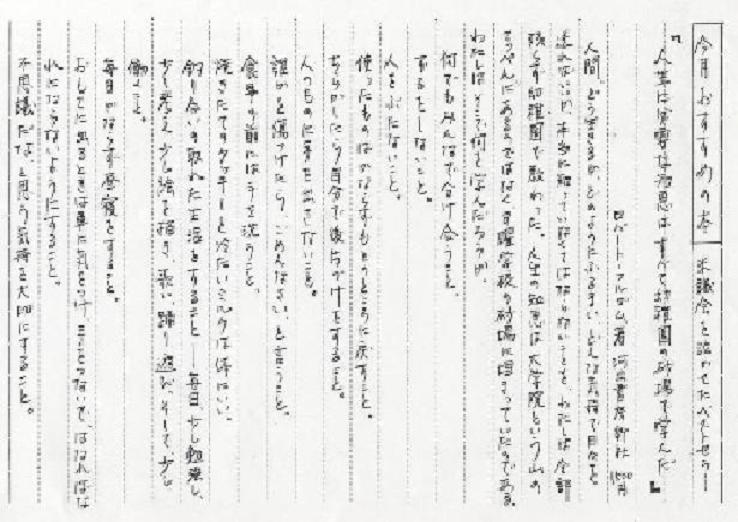 今月おすすめの本 米議会を設わせたベストセラー
『人生に必要な知恵はすべて幼稚園の砂場で学んだ』
ロバート・フルガム著 河出書房新社
人間、どう生きるか、どのようにふるまい、どんな気持で日々を
送ればいいか、本当に知っていなくてはならないことを、わたしは全部
残らず幼稚園で教わった。人生の知恵は大学院という山の
てっぺんにあるのではなく、日曜学校の砂場に埋まっていたのである。
わたしはそこで何を学んだろうか。
何でもみんなで分け合うこと。
ずるをしないこと。
人をぶたないこと。
使ったものはかならずもとのところに戻すこと。
ちらかしたら自分で後片づけをすること。
人のものに手を出さないこと。
誰かを傷つけたら、ごめんなさい、と言うこと。
食事の前には手を洗うこと。
焼きたてのクッキーと冷たいミルクは体にいい。
釣り合いの取れた生活をすること――毎日、少し勉強し、
少し考え、少し絵を描き、歌い、踊り、遊び、そして、少し
働くこと。
毎日かならず昼寝をすること。
おもてに出るときは車に気をつけ、手をつないで、はなればな
れにならないようにすること。
不思議だなと思う気持を大切にすること。